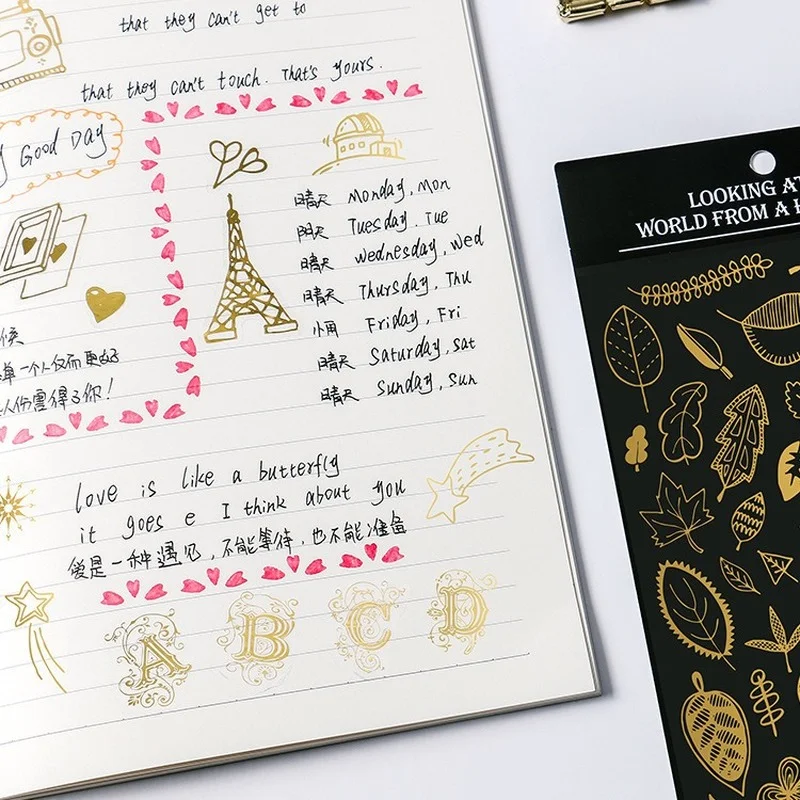 that they can't get to
that they can't touch. That's yours.
Good Day
晴天 Monday, Mon
阴天 Tuesday, Tue
晴天 Wednesday, Wed
晴天 Thursday, Thu
小雨 Friday, Fri
晴天 Saturday, Sat
晴天 Sunday, Sun
候
单一个人仅而更好
人伤害得了你!
love is like a butterfly
it goes e I think about you
爱是一种遇见,不能等待,也不能准备
A B C D
LOOKING AT
WORLD FROM A